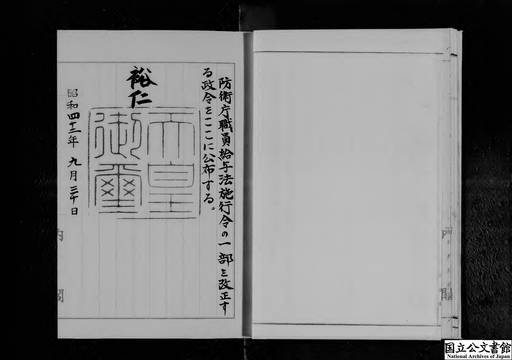 防衛庁職員給与法施行令の一部を改正す
る政令をここに公布する。
裕仁
天皇
御璽
昭和四十三年九月三十日
内閣
内閣
国立公文書館
National Archives of Japan